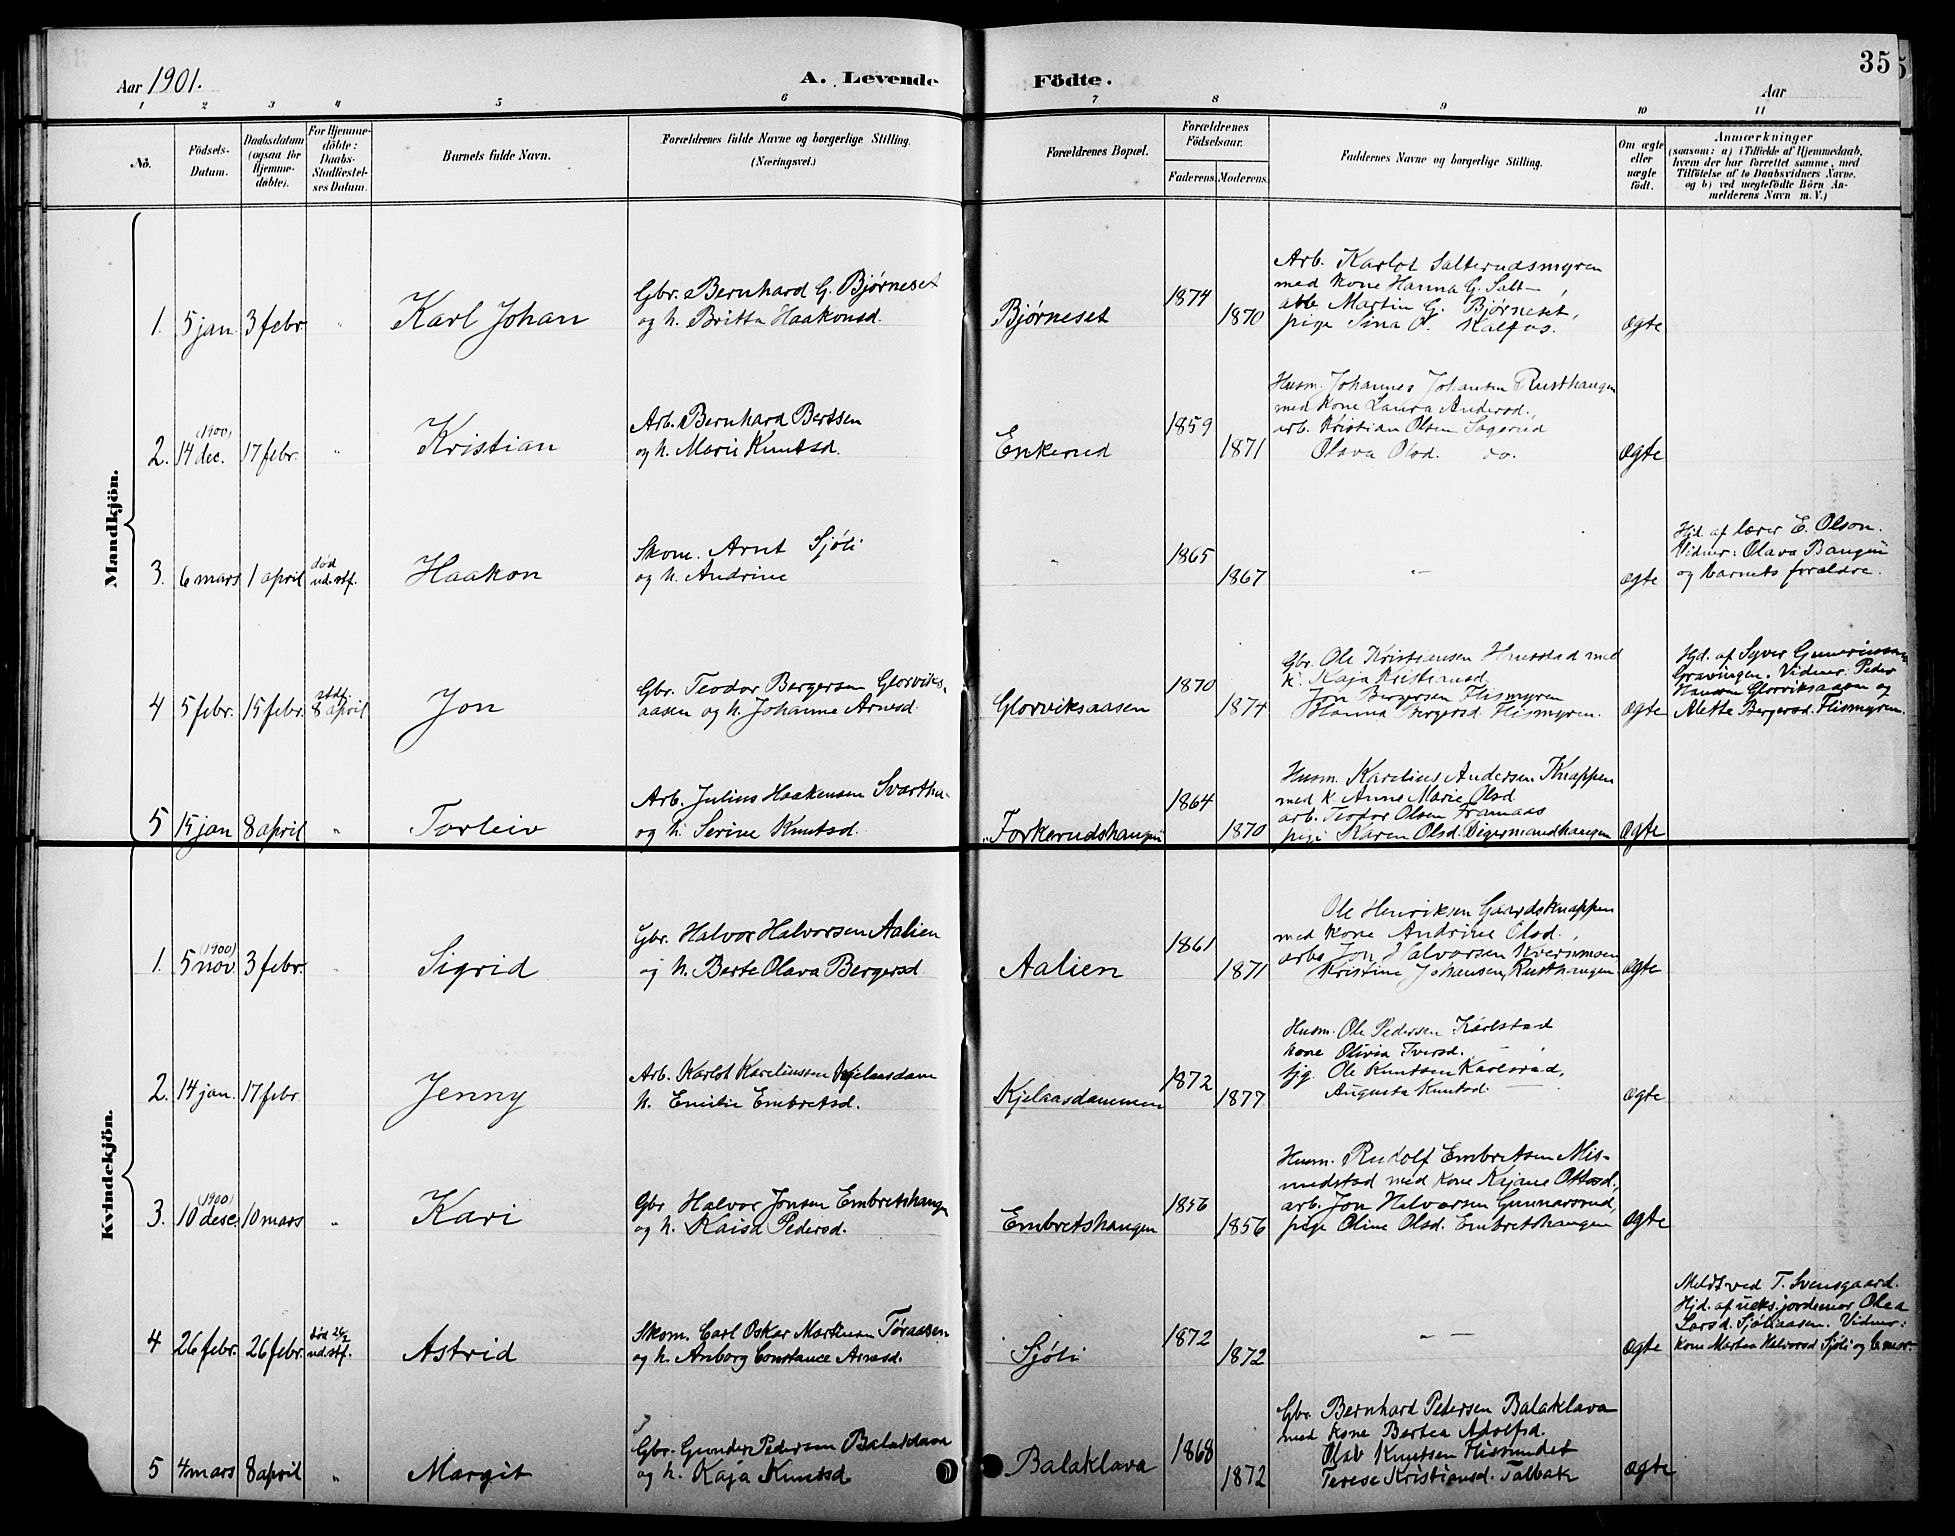 35
Aar 1901.
A. Levende Födte.
Aar
1 2 3 4 5 6 7 8 9 10 11
No.
Födsels-
Datum.
Daabsdatum
(ogsaa for
Hjemme-
døbte).
For Hjemme-
døbte:
Daabs-
Stadfæstel-
ses Datum.
Barnets fulde Navn.
Forældrenes fulde Navne og borgerlige Stilling.
(Næringsvei.)
Forældrenes Bopæl.
Forældrenes
Födselsaar.
Faderens. Moderens.
Faddernes Navne og borgerlige Stilling.
Om ægte
eller
uægte
født.
Anmærkninger
(saasom: a) i Tilfælde af Hjemmedaab,
hvem der har forrettet samme, med
Tilføielse af to Daabsvidners Navne.
og b) ved uægtefödte Börn An-
melderens Navn m. V.)
Mandkjön.
1. 5 jan. 3 febr. "
Karl Johan
Gbr. Bernhard G. Bjørneset
og h. Britta Haakonsd.
Bjørneset
1874
1870
Arb. Karlot Salterudsmyren
med kone Hanna G. Salt—
Martin G. Bjørneset,
pige Sina O. Kalfos.
ægte
2. (1900)
14 dec. 17 febr. "
Kristian
Arb. Bernhard Berntsen
og h. Marie Knutsd.
Enkerud
1859
1871
Husm. Johannes Johansen Rusthaugen
med kone Laura Andersd.,
arb. Kristian Olsen Sagerud
Olava Olsd. do.
ægte
3. 6 mars 1 april
død
ud. stf.
Haakon
Skom. Arnt Sjøli
og h. Andrine
"
1865
1867
"
ægte
Hjd. af lærer E. Olson.
Vidner: Olava Bangen
og barnets forældre.
4 5 febr. 15 febr.
stdf.
8 april
Jon
Gbr. Teodor Bergersen Glorviks-
aasen og h. Johanne Arnesd.
Glorviksaasen
1870
1874
Gbr. Ole Kristiansen Hnustad med
k. Kaja Kristiansd.
Jon Bergersen Flismyren
Hanna Bergersd. Flismyren.
ægte
Hjd. af Syver Gunerius
Gravingen. Vidner: Peder
Hansen Glorviksaasen og
Alette Bergersd. Flismyren.
5 15 jan 8 april "
Torleiv
Arb. Julius Haakensen Svartha-
og h. Serine Knutsd.
Forkerudshaugen
1864
1870
Husm. Karelius Andersen Knappen
med k. Anne Marie Olsd
arb. Teodor Olsen Framaas
pige Karen Olsd. Digermandhaugen
ægte
Kvindekjön.
1. (1900)
5 nov. 3 febr. "
Sigrid
Gbr. Halvor Halvorsen Aalien
og h. Berte Olava Bergersd.
Aalien
1861
1871
Ole Henriksen Gaardsknappen
med kone Andrine Olsd.
arb. Jon Halvorsen Kvernmoen
Kristine Johansen, Rusthaugen
ægte
2. 14 jan. 17 febr.
Jenny
Arb. Karlot Kareliussen Kjelaasdam
h. Emilie Embretsd.
Kjelaasdammen
1872
1877
Husm. Ole Pedersen Karlstad
kone Olivia Iversd. —
tjg. Ole Knutsen Karlsrud,
Augusta Knutsd. —
ægte
3. (1900)
10 desc. 10 mars "
Kari
Gbr. Halvor Jonsen Embretshaugen
og h. Kaisa Pedersd.
Embretshaugen
1856
1856
Husm. Rudolf Embretsen Mis-
mdstad med kone Kajane Ottosd.,
arb. Jon Halvorsen Gunnarsrud,
pige Oline Olsd. Embretshaugen
ægte
4 26 febr. 26 febr.
død 28/2
ud. stf.
Astrid
Skom. Carl Oskar Martinsen Töraasen
og h. Anborg Constance Arnesd.
Sjøli
1872
1872
" "
ægte
Meldt ved T. Svensgaard.
Hjd. af ueks. jordemor Olea
Larsd. Sjøliaasen. Vidner:
kone Martea Halvorsd Sjøli og b. mor.
5 4 mars 8 april "
Margit
Gbr. Gunder Pedersen Balaklava
og h. Kaja Knutsd.
Balaklava
1868
1872
Gbr. Bernhard Petersen Balaklava
med kone Bertea Adolfsd.
Olav Knutsen Flismundet
Terese Kristiansd. Talbak
ægte